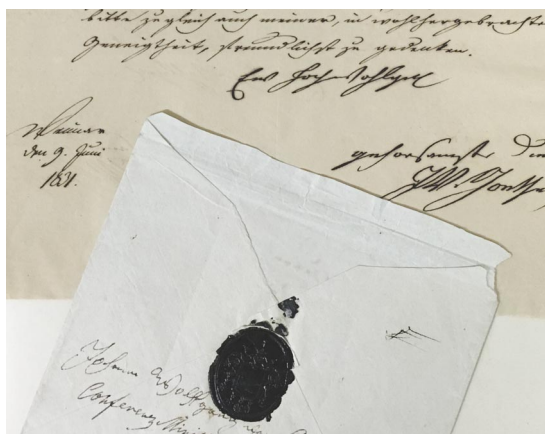 bitte zugleich auch meiner, in wohlhergebrachte
Geneigtheit, freundlichst zu gedenken.
Ew Hochwohlgeb
Weimar
den 9. Juni
1821.
gehorsamster Die
JW. Goethe
Johann Wolfgang
Conferenz Minis